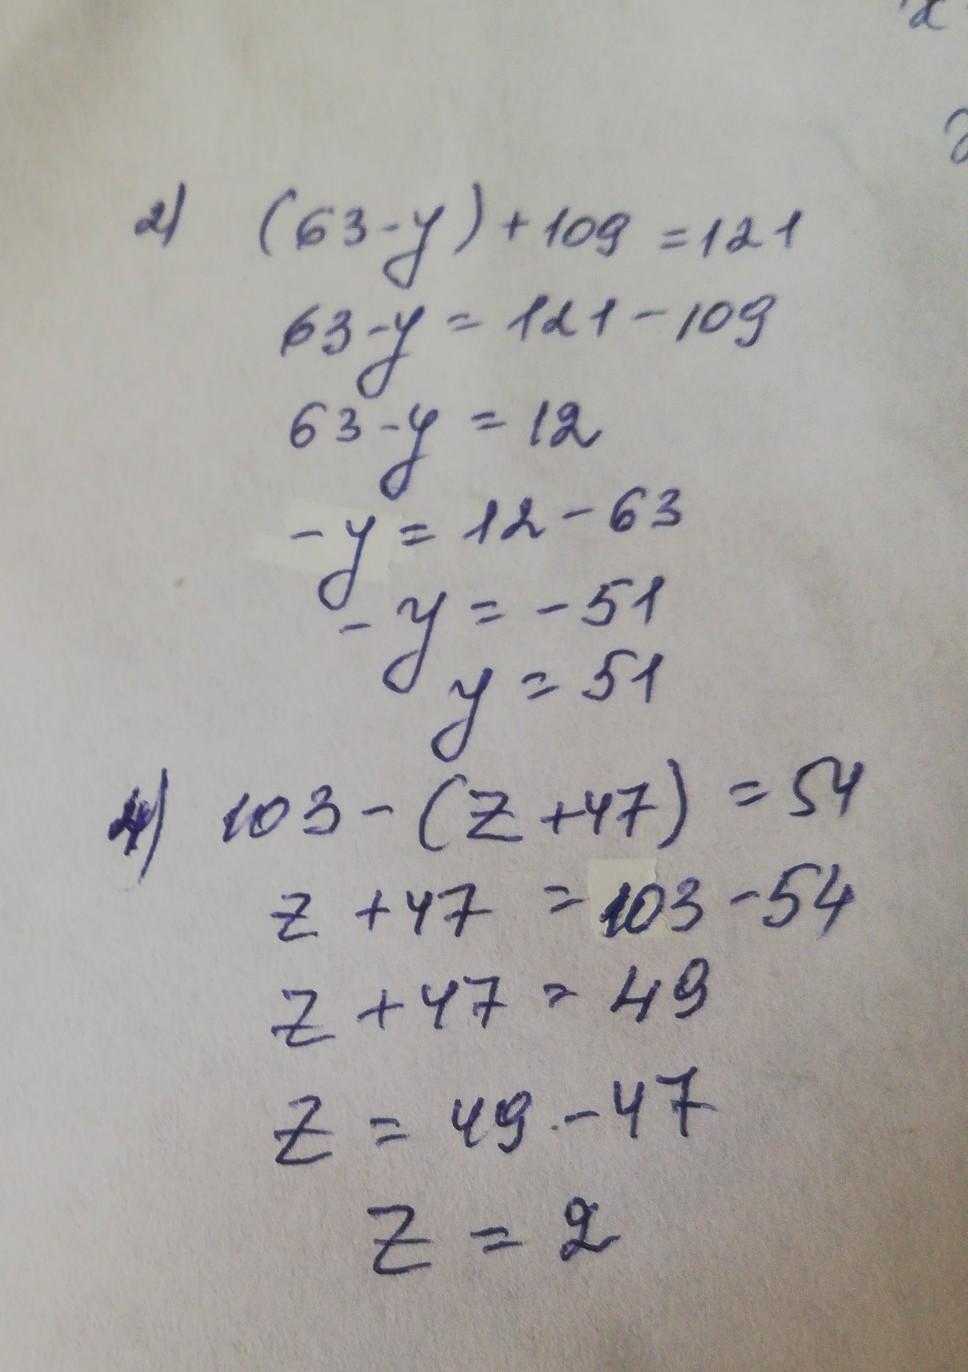 2) (63-y)+109 =121
63-y = 121-109
63-y = 12
-y = 12-63
-y = -51
y = 51
4) 103-(z+47) = 54
z +47 = 103-54
z +47 = 49
z = 49-47
z = 2